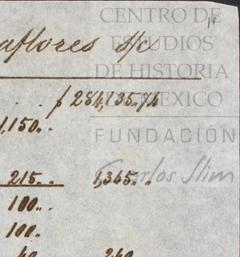 CENTRO DE
ESTUDIOS
DE HISTORIA
DE MEXICO
FUNDACIÓN
Carlos Slim
aflores S/c
$ 284,135.74
1,150..
215.. 1,365..
100..
100..